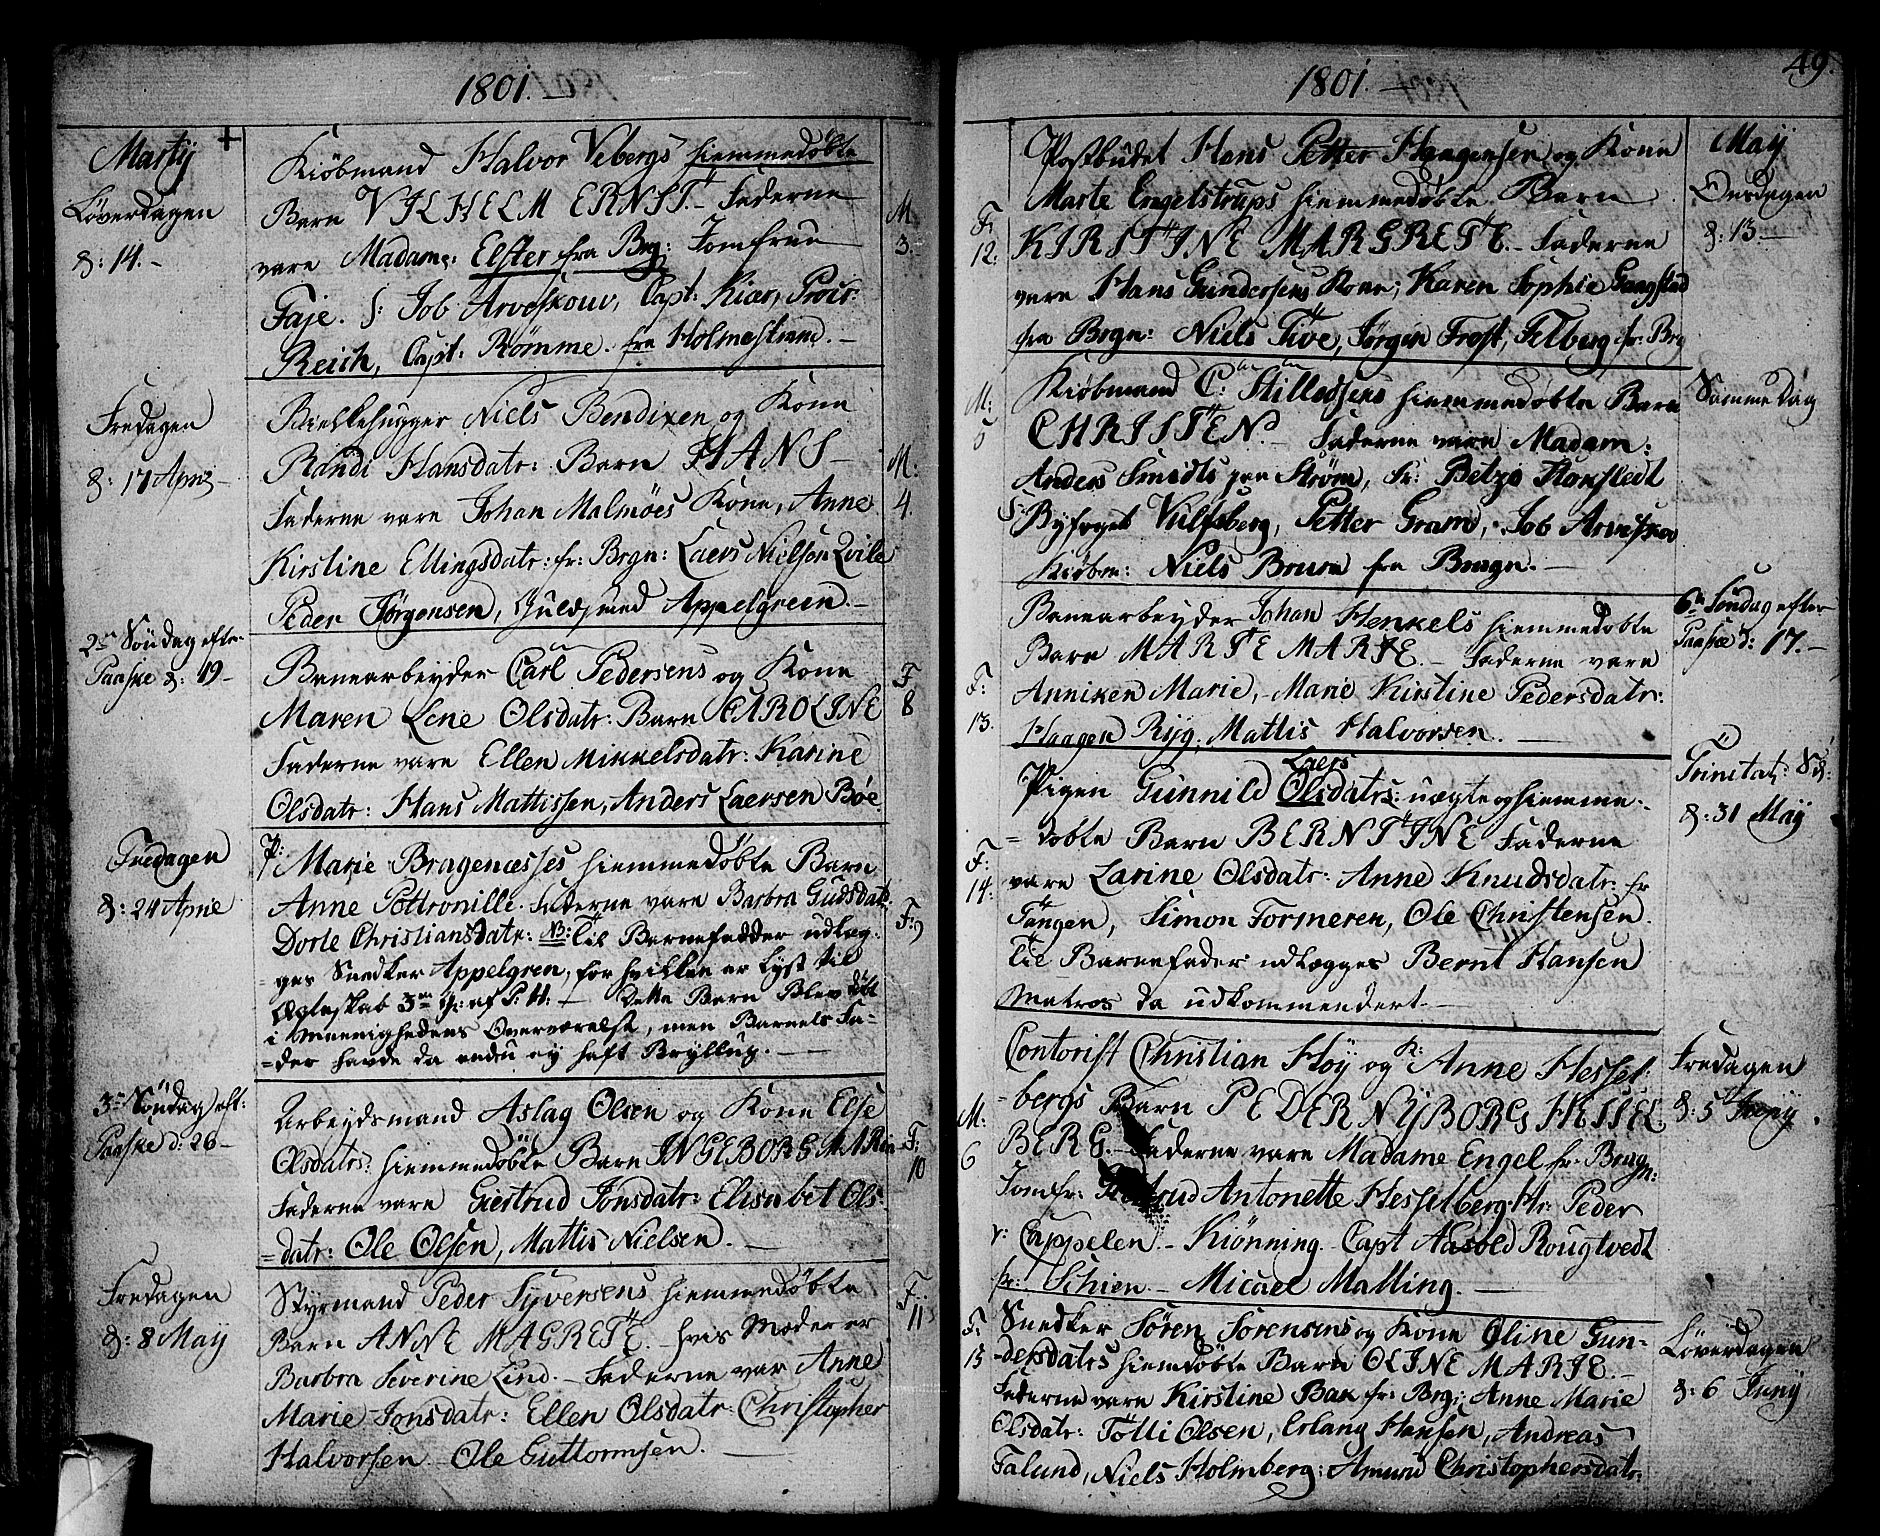 1801.
Martij
Løverdagen
d: 14.
Kiöbmand Halvor Vebergs hiemmedøbte
Barn VILHELM ERNST. Fadderne
vare Madam: Elster fra Brg: Jomfrue
Faje. S: Job Arveskouv, Capt: Kiær, Procr:
Reich, Capt: Rømme. fra Holmestrand.
M.
3.
Fredagen
d: 17 April
Biellehugger Niels Bendixen og Kone
Randi Hansdatr: Barn HANS
Fadderne vare Johan Malmöes Kone, Anne
Kirstine Ellingsdatr: fr: Brgn: Laers Nielsen Qvile
Peder Jørgensen, Guldsmed Appelgreen.
M:
4.
2den Søndag eftr
Paaske d: 19
Banearbeyder Carl Pedersens og Kone
Maren Lene Olsdatr: Barn CAROLINE
Fadderne vare Ellen Mikkelsdatr: Karine
Olsdatr: Hans Mattissen, Anders Laersen Böe.
F
8
Fredagen
d: 24 April
P: Marie Bragenæsses hiemmedøbte Barn
Anne Pottronille. Fadderne vare Barbra Gudsdatr.
Dorte Christiansdatr: NB: Til Barnefadder udlæg-
ges Snedker Appelgren, for hvilken er lyst til
Ægteskab 3die g: af P: H: Dette Barn blev döbt
i Meenighedens Overværelse, men Barnets Fa-
der havde da endnu ey haft Bryllup.
F: 9
3die Söndag eft:
Paaske d: 26
Arbeydsmand Aslag Olsen og Kone Else
Olsdatrs: hiemmedøbte Barn INGEBORG MARIA
Fadderne vare Giertrud Jonsdatr: Elisabet Ols-
datr: Ole Olsen, Mattis Nielsen.
F:
10
Fredagen
d: 8 May
Styrmand Peder Syversens hiemmedöbte
Barn ANNE MAGRETE. hvis Moder er
Barbra Severine Lind. Fadderne var Anne
Marie Jonsdatr: Ellen Olsdatr: Christopher
Halvorsen Ole Guttormsen.
F:
11
49.
1801.
Postbudet Hans Petter Haagensen og Kone
Marte Engelstrups hiemmedøbte Barn
KIRSTINE MARGRETE. Fadderne
vare Hans Gundersens Kone; Karen Sophie Gaagstad
fra Brgn: Niels Tive, Jörgen Frost, Filberg fr: Brg
F:
12.
May
Onsdagen
d: 13.
Kiöbmand C: Stillodsens hiemmedøbte Barn
CHRISTEN. Fadderne vare Madam:
Anders Smidts paa Strøm, Fr: Betzi Stokstedt
S: Byfoget Vulfsberg, Petter Gram, Job Arveskov
Kiöbm: Niels Bruun fra Bragn.
M:
5
Samme Dag
Banearbeyder Johan Henkels hiemmedöbte
Barn MARTE MARIE. Fadderne vare
Anniken Marie, Marie Kirstine Pedersdatr:
Haagen Ryg, Mattis Halvorsen.
F:
13.
6te Søndag efter
Paaske d: 17.
Laers
Pigen Gunnild Olsdatrs: uægte og hiemme-
døbte Barn BERNTINE Fadderne
vare Larine Olsdatr: Anne Knudsdatr: fr
Tangen, Simon Formeren, Ole Christensen.
til Barnefader udlægges Bernt Hansen
Matros da udkommendert.
F:
14.
Trinitat: Sd:
d: 31 May
Contorist Christian Höy og Fr: Anne Hessel-
bergs Barn PEDER NYBORG HESSEL
BERG. Fadderne vare Madame Engel fr. Bragn:
Jomfr: Giertrud Antonette Hesselberg. Hr: Peder
v: Cappelen. Kiønning. Capt Aasold Rougtvedt
fr: Schien. Micael Malling.
M:
6
Fredagen
d: 5 Junij
Snedker Søren Sørensens og Kone Oline Gun-
dersdatrs hiemdøbte Barn OLINE MARIE.
Fadderne vare Kirstine Bak fr: Brg: Anne Marie
Olsdatr: Tölli Olsen, Erlang Hansen, Andreas
Falund, Niels Holmberg: Amund Christophersdatr.
F:
15
Løverdagen
d: 6 Junij